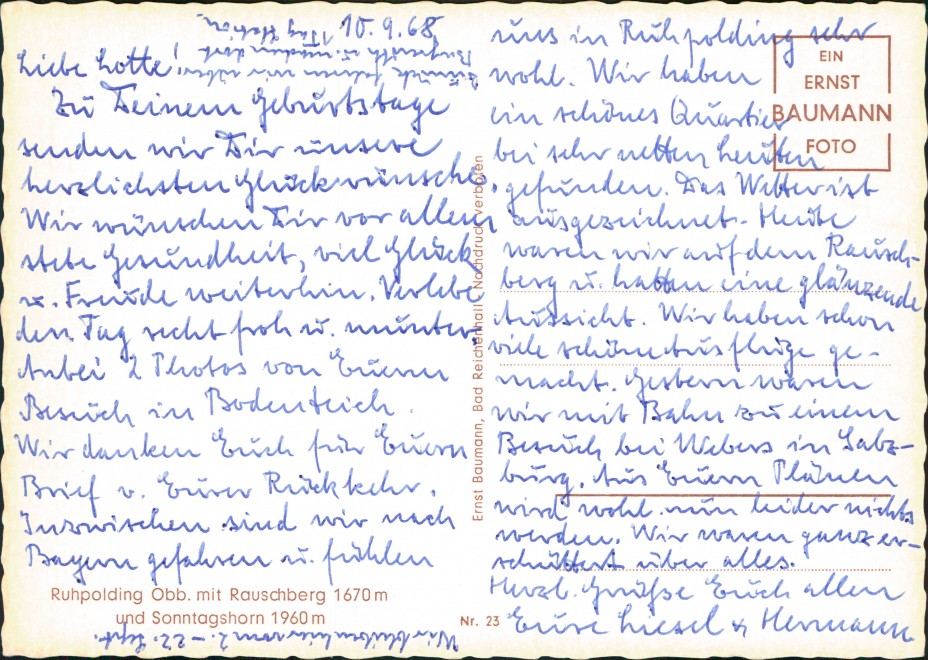 10.9.68
Liebe Lotte!
Zu Deinem Geburtstage
senden wir Dir unsere
herzlichsten Glückwünsche.
Wir wünschen Dir vor allem
stets Gesundheit, viel Glück
u. Freude weiterhin. Verlebe
den Tag recht froh u. munter.
Anbei 2 Photos von Euerm
Besuch in Bodenteich.
Wir danken Euch für Euern
Brief v. Eurer Rückkehr.
Inzwischen sind wir nach
Bayern gefahren u. fühlen
uns in Ruhpolding sehr
wohl. Wir haben
ein schönes Quartier
bei sehr netten Leuten
gefunden. Das Wetter ist
ausgezeichnet. Heute
waren wir auf dem Rausch-
berg u. hatten eine glänzende
Aussicht. Wir haben schon
viele schöne Ausflüge ge-
macht. Gestern waren
wir mit Bahn zu einem
Besuch bei Webers in Salz-
burg. Aus Euern Plänen
wird wohl nun leider nichts
werden. Wir waren ganz er-
schüttert über alles.
Herzl. Grüße Euch allen
Eure Liesel & Hermann
Wir bleiben hier vom 2. - 22. Sept.
Zurück fahren wir über
Bayreuth u. machen dort
1 Tag Station
EIN
ERNST
BAUMANN
FOTO
Ernst Baumann, Bad Reichenhall, Nachdruck verboten
Ruhpolding Obb. mit Rauschberg 1670 m
und Sonntagshorn 1960 m
Nr. 23